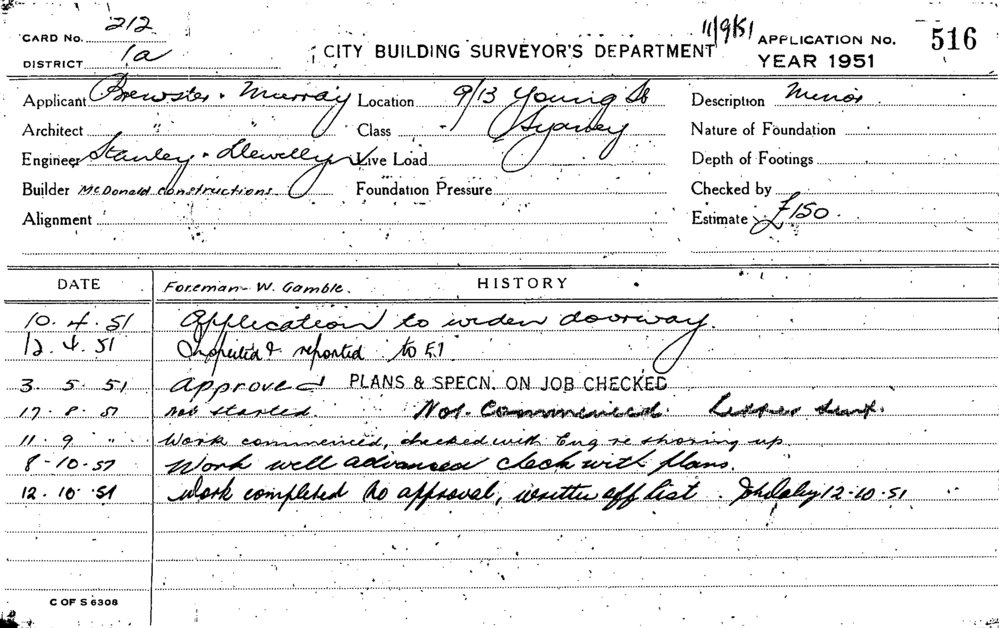 CARD No. 212 11/9/51 APPLICATION No. 516
DISTRICT 1a CITY BUILDING SURVEYOR'S DEPARTMENT YEAR 1951
Applicant Brewster & Murray Location 9/13 Young St Description Minor
Architect " " Class Sydney Nature of Foundation
Engineer Stanley & Llewellyn Live Load Depth of Footings
Builder McDonald Constructions Foundation Pressure Checked by
Alignment Estimate £150
DATE Foreman - W. Gamble. HISTORY
10.4.51 Application to widen doorway.
12.4.51 Inspected & reported to
3 5 51 Approved PLANS & SPECN. ON JOB CHECKED
17.8.51 not started. Not Commenced. Letter sent.
11.9 " Work commenced, checked with Eng re shoring up.
8-10-51 Work well advanced check with plans.
12.10.51 Work completed to approval, written off list. 12-10-51
C OF S 6308